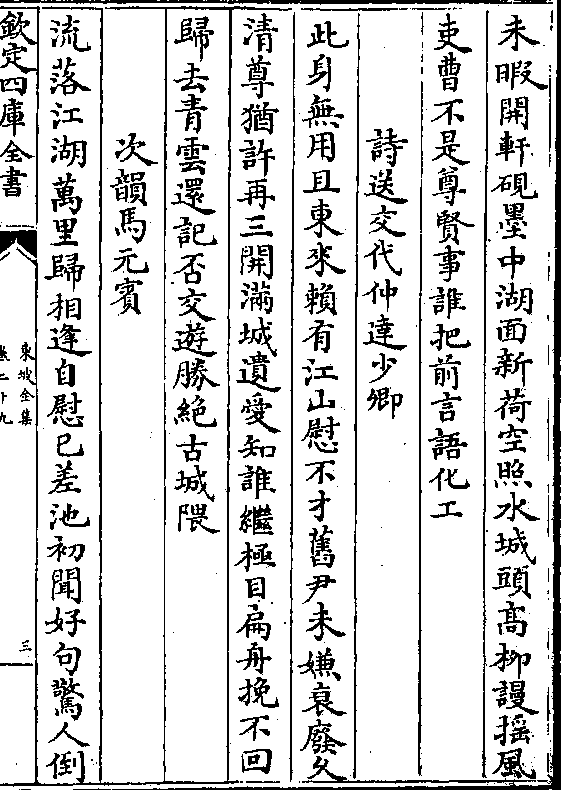 未暇開軒硯墨中湖面新荷空照水城頭髙柳謾揺風
吏曹不是尊賢事誰把前言語化工
詩送交代仲達少卿
此身無用且東來賴有江山慰不才舊尹未嫌衰廢久
清尊猶許再三開滿城遺愛知誰繼極目扁舟挽不回
歸去青雲還記否交遊勝絶古城隈
次韻馬元賓
流落江湖萬里歸相逢自慰已差池初聞好句驚人倒
欽定四庫全書
東坡全集
卷二十九
三